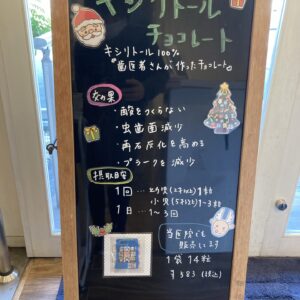 キシリトール
チョコレート
キシリトール100%
"歯医者さんが作ったチョコレート"
効果
・酸をつくらない
・虫歯菌減少
・再石灰化を高める
・プラークを減少
摂取目安
1回…
小児(5才以上)1~3粒
1日…1~3回
当医院でも
販売してます
1袋14粒
¥383(税込)